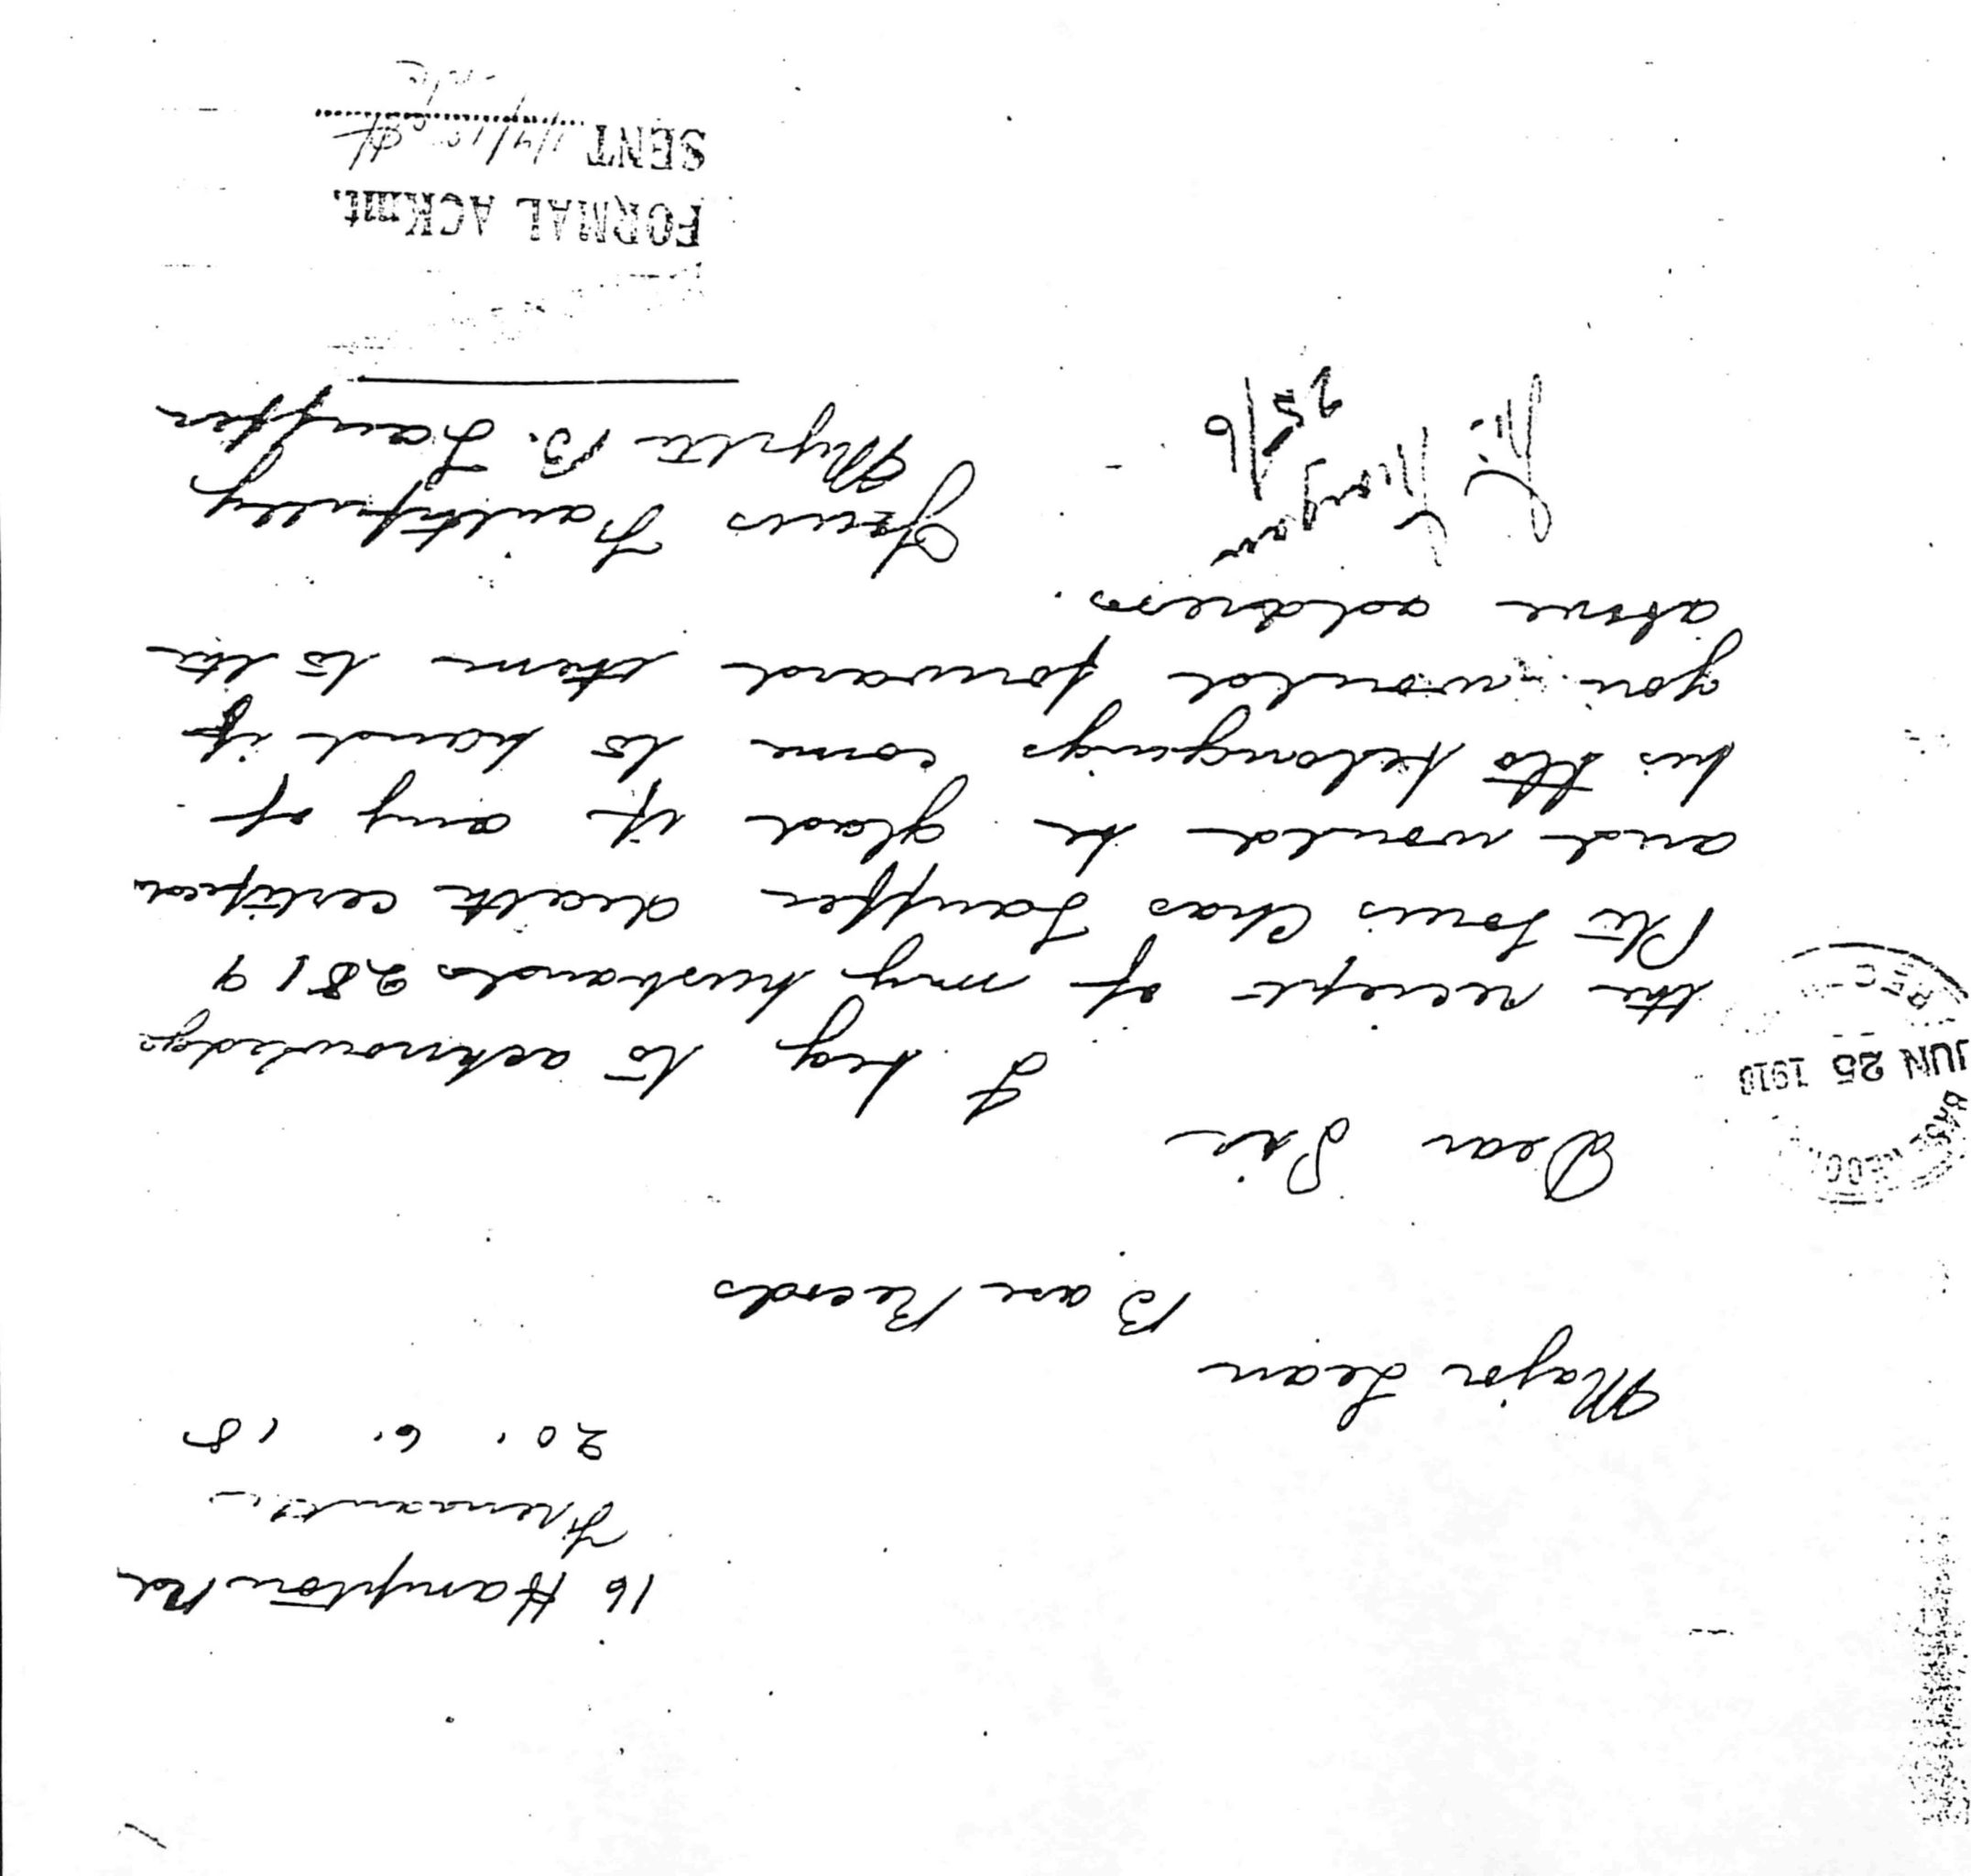 16 Hampton Rd
Fremantle
20. 6. 18
Major Lean
Base Records
Dear Sir
I beg to acknowledge
the reciept of my husbands 2819
Pte Louis Chas Lauffer death certificate
and would be glad if any of
his tto belongings come to hand if
you would forward them to the
above address.
Yours Faithfully
Myrta B. Lauffer
JUN 25 1918
FORMAL ACKmt.
SENT